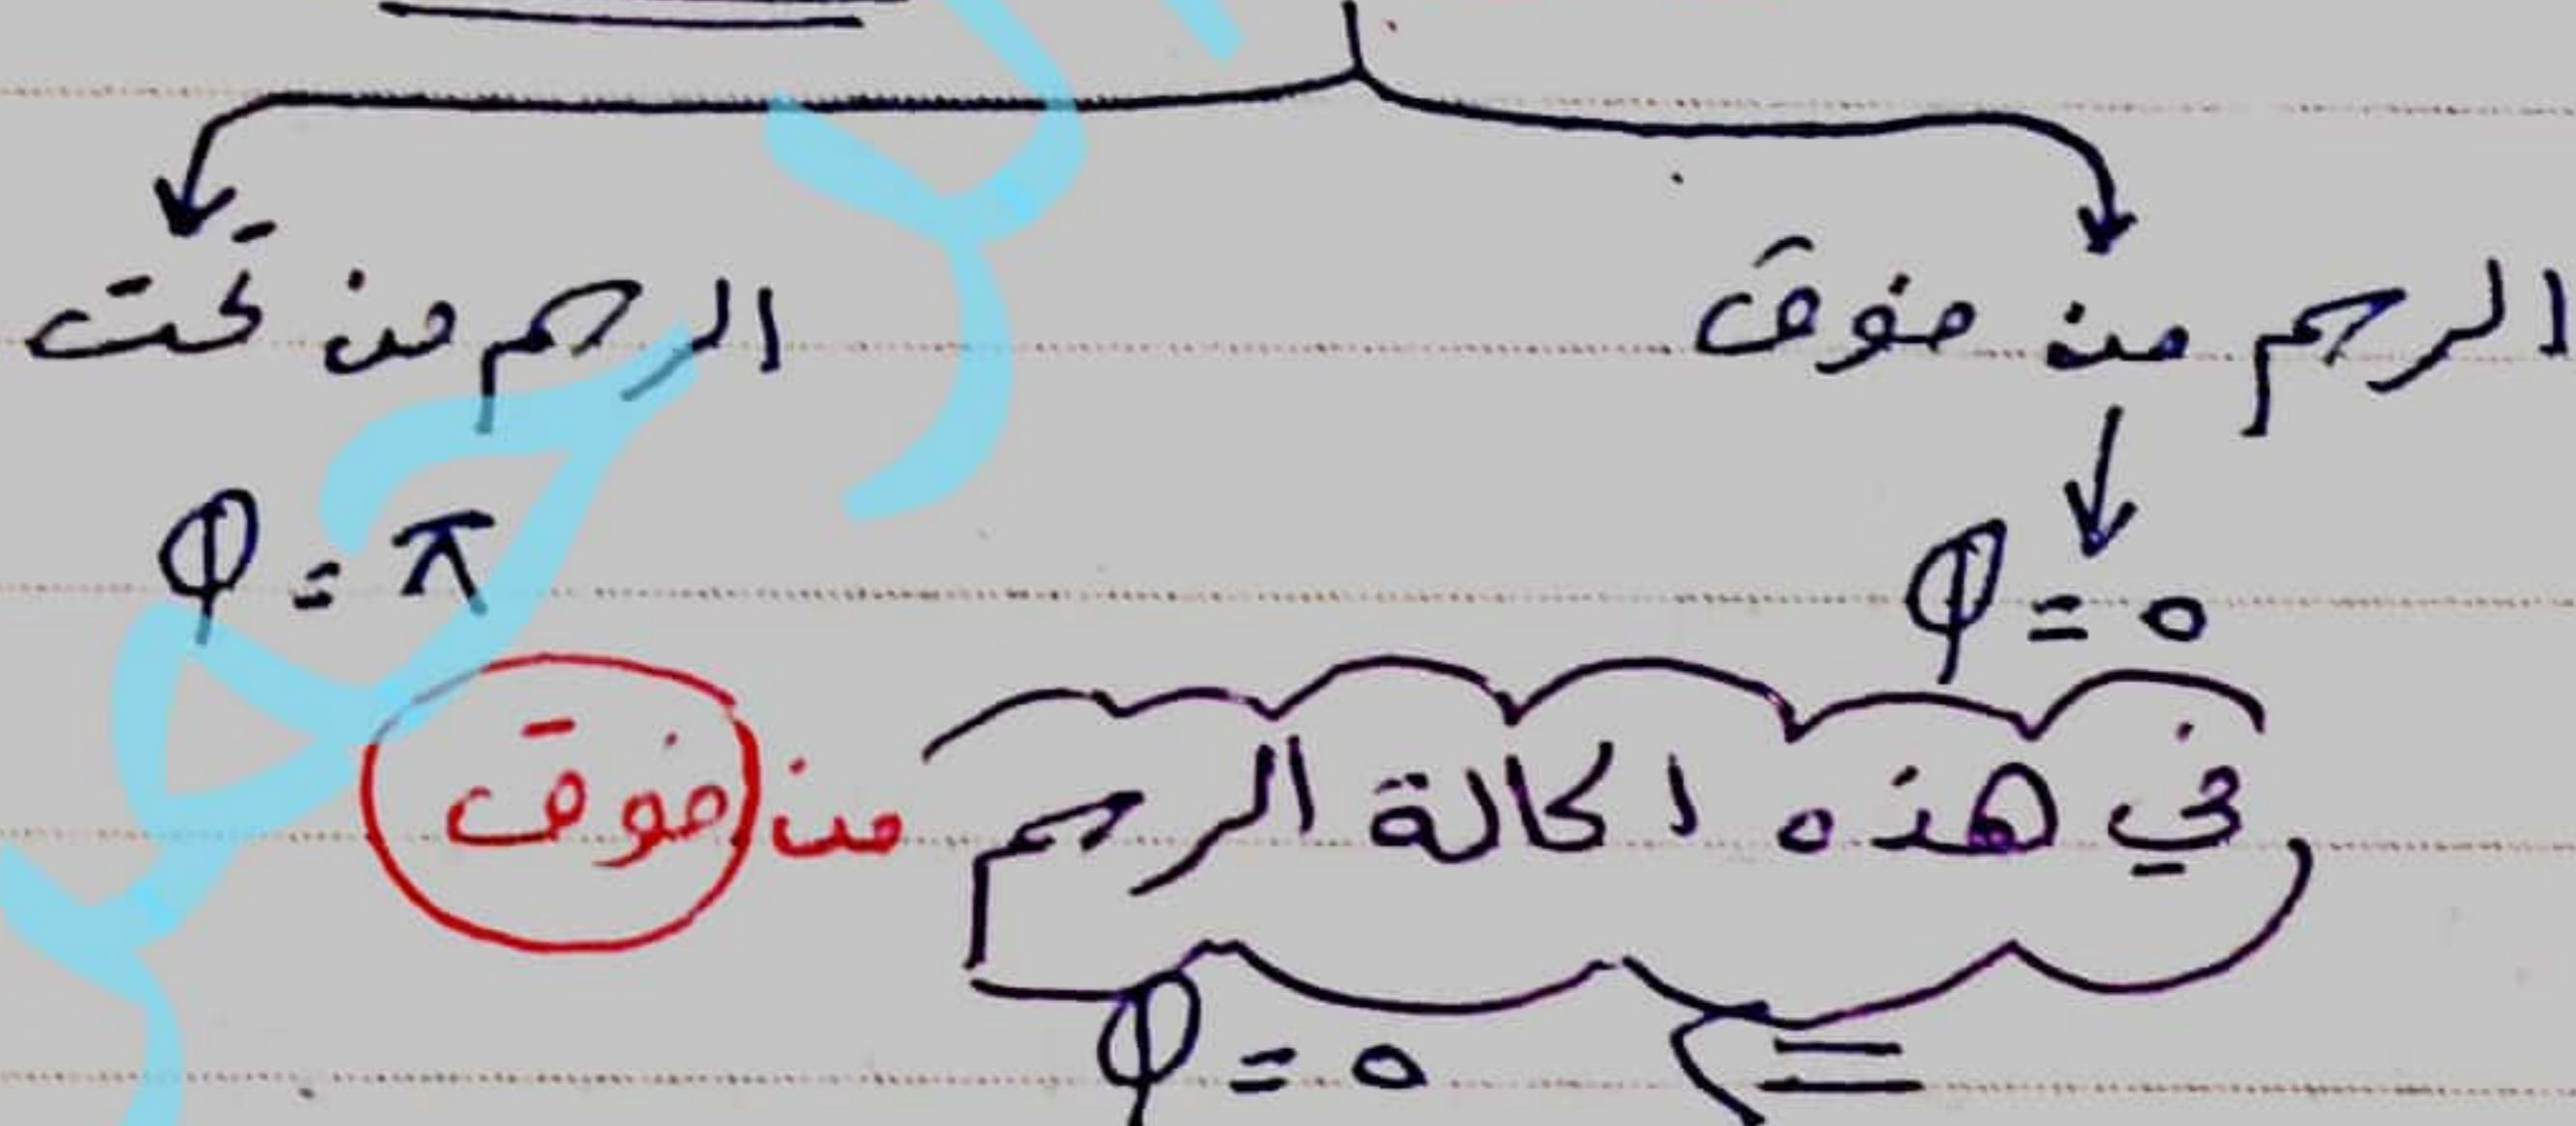 الرسم من فوق
الرسم من تحت
φ = 0
φ = π
في هذه الحالة الرسم من فوق
φ = 0